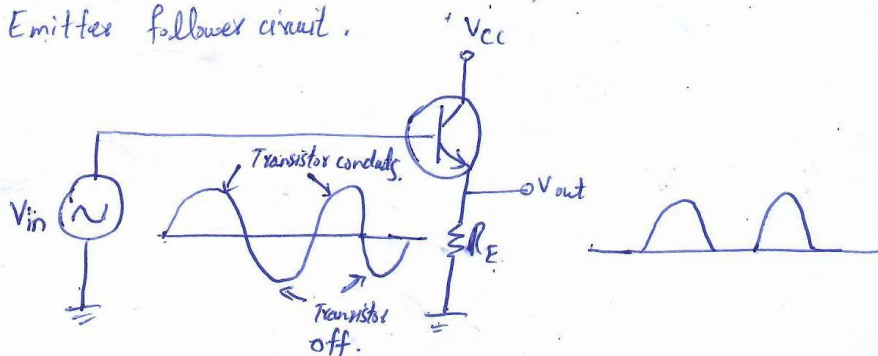 Emitter follower circuit.
+ Vcc
Transistor conducts.
Vin
Vout
RE
Transistor
off.